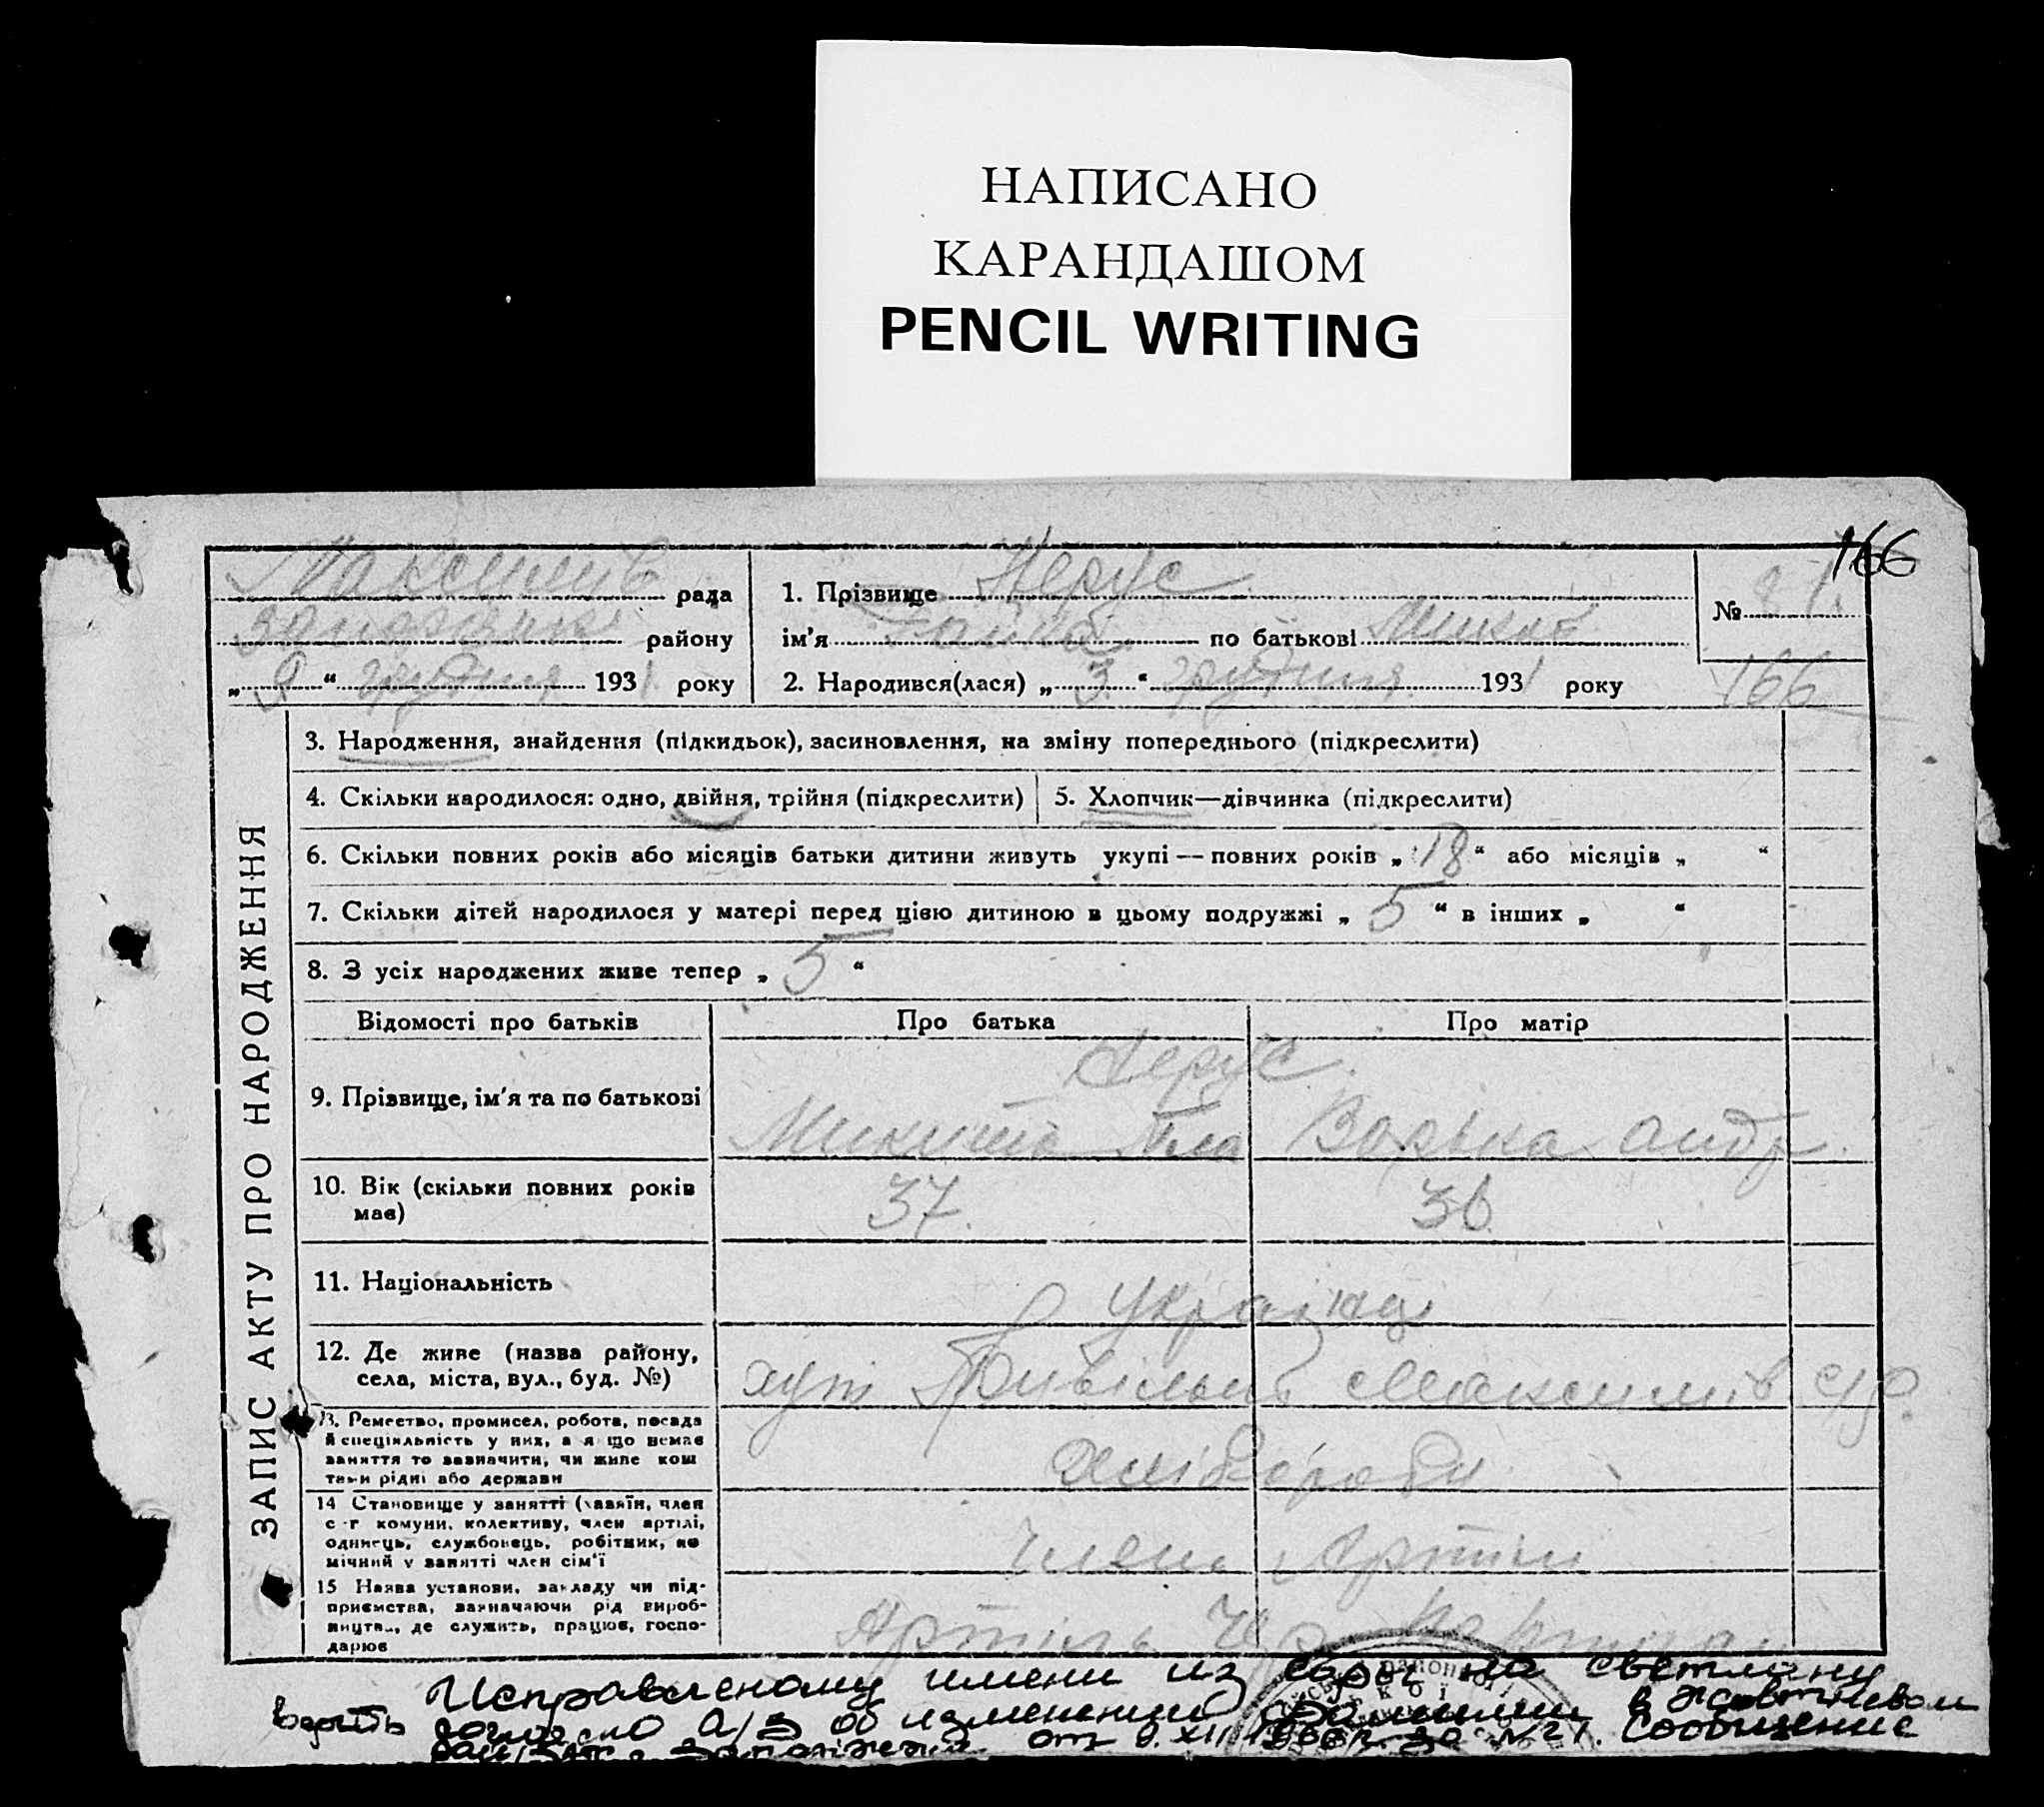 НАПИСАНО
КАРАНДАШОМ
PENCIL WRITING
166
Максимів рада
району
„ 9 “ грудня 1931 року
1. Прізвище Нерус
ім’я по батькові Микит
2. Народився(лася) „ 3 “ грудня 1931 року
№ 21.
166
ЗАПИС АКТУ ПРО НАРОДЖЕННЯ
3. Народження, знайдення (підкидьок), засиновлення, на зміну попереднього (підкреслити)
4. Скільки народилося: одно, двійня, трійня (підкреслити)
5. Хлопчик—дівчинка (підкреслити)
6. Скільки повних років або місяців батьки дитини живуть укупі — повних років „ 18 “ або місяців „ “
7. Скільки дітей народилося у матері перед цією дитиною в цьому подружжі „ 5 “ в інших „ “
8. З усіх народжених живе тепер „ 5 “
Відомості про батьків
Про батька
Про матір
9. Прізвище, ім’я та по батькові
Нерус
Микита
Варька Андр.
10. Вік (скільки повних років має)
37.
36
11. Національність
Українці
12. Де живе (назва району,
села, міста, вул., буд. №)
хут Максимів с/р.
13. Ремество, промисел, робота, посада
й спеціяльність у них, а я що немає
заняття то зазначити, чи живе кош
тами рідні або держави
Хлібороби
14 Становище у занятті (хазяїн, член
с-г комуни, колективу, член артілі,
одинець, службовець, робітник, по
мічний у занятті член сім’ї
Члени Артіли
15 Назва установи, закладу чи під-
приємства, зазначаючи рід вироб-
ництва, де служить, працює, госпо-
дарює
Артіль
Исправленому имени из на Светлану
верить согласно а/з об изменении фамилии в Жовтневом
Запорожья от 9.XII за № 21. Сообщение